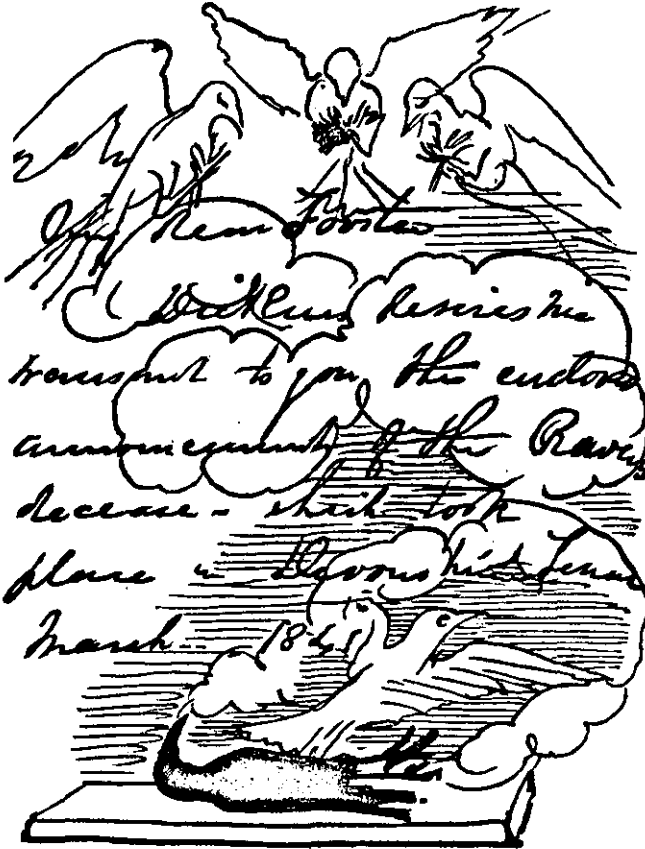 My dear Forster
Dickens desires me
transmit to you the enclosed
announcement of the Ravens
decease - which took
place in Devonshire Terrace
March 1841